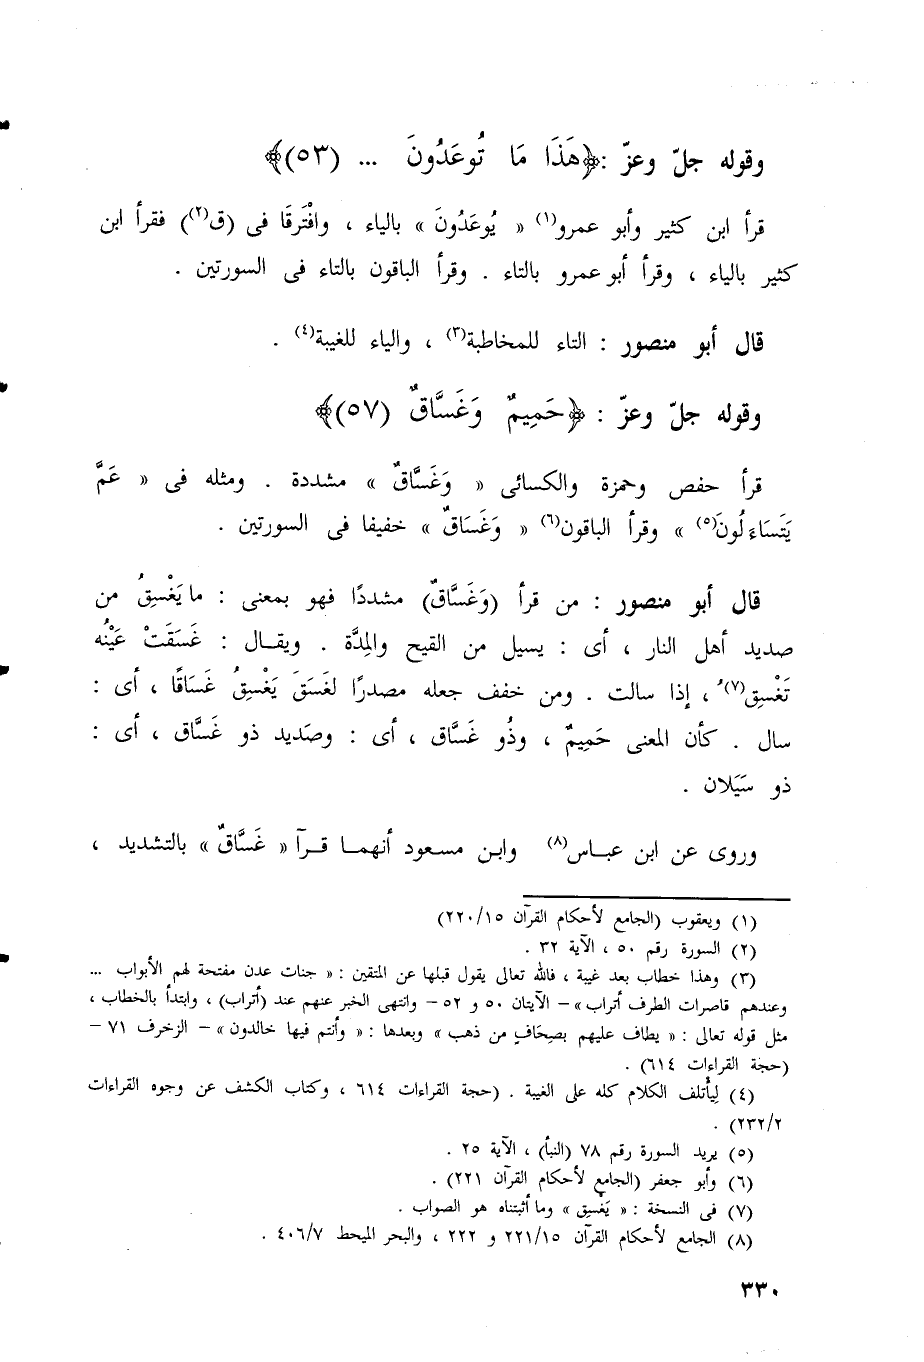 وقوله جلّ وعزّ : ﴿هَذَا مَا تُوعَدُونَ ... (٥٣)﴾
قرأ ابن كثير وأبو عمرو(١) « يُوعَدُونَ » بالياء ، وافْتَرقَا فى (ق(٢)) فقرأ ابن
كثير بالياء ، وقرأ أبو عمرو بالتاء . وقرأ الباقون بالتاء فى السورتين .
قال أبو منصور : التاء للمخاطبة(٣) ، والياء للغيبة(٤) .
وقوله جلّ وعزّ : ﴿حَمِيمٌ وَغَسَّاقٌ (٥٧)﴾
قرأ حفص وحمزة والكسائى « وَغَسَّاقٌ » مشددة . ومثله فى « عَمَّ
يَتَسَاءَلُونَ(٥) » وقرأ الباقون(٦) « وَغَسَاقٌ » خفيفا فى السورتين .
قال أبو منصور : من قرأ (وَغَسَّاقٌ) مشددًا فهو بمعنى : ما يَغْسِقُ من
صديد أهل النار ، أى : يسيل من القيح والمِدَّة . ويقـال : غَسَقَتْ عَيْنُه
تَغْسِق(٧)ُ ، إذا سالت . ومن خفف جعله مصدرًا لغَسَقَ يَغْسِقُ غَسَاقًا ، أى :
سال . كأن المعنى حَمِيمٌ ، وذُو غَسَّاق ، أى : وصَديد ذو غَسَّاق ، أى :
ذو سَيَلان .
وروى عن ابن عبـاس(٨) وابـن مسـعود أنهمـا قـرآ « غَسَّاقٌ » بالتشديد ،
(١) ويعقوب (الجامع لأحكام القرآن ٢٢٠/١٥)
(٢) السورة رقم ٥٠ ، الآية ٣٢ .
(٣) وهذا خطاب بعد غيبة ، فالله تعالى يقول قبلها عن المتقين : « جنات عدن مفتحة لهم الأبواب ...
وعندهم قاصرات الطرف أتراب » – الآيتان ٥٠ و ٥٢ – وانتهى الخبر عنهم عند (أتراب) ، وابتدأ بالخطاب ،
مثل قوله تعالى : « يطاف عليهم بصِحَافٍ من ذهب » وبعدها : « وأنتم فيها خالدون » – الزخرف ٧١ –
(حجة القراءات ٦١٤) .
(٤) لِيأْتلف الكلام كله على الغيبة . (حجة القراءات ٦١٤ ، وكتاب الكشف عن وجوه القراءات
٢٣٢/٢) .
(٥) يريد السورة رقم ٧٨ (النبأ) ، الآية ٢٥ .
(٦) وأبو جعفر (الجامع لأحكام القرآن ٢٢١) .
(٧) فى النسخة : « يَغْسِق » وما أثبتناه هو الصواب .
(٨) الجامع لأحكام القرآن ٢٢١/١٥ و ٢٢٢ ، والبحر المحيط ٤٠٦/٧ .
٣٣٠